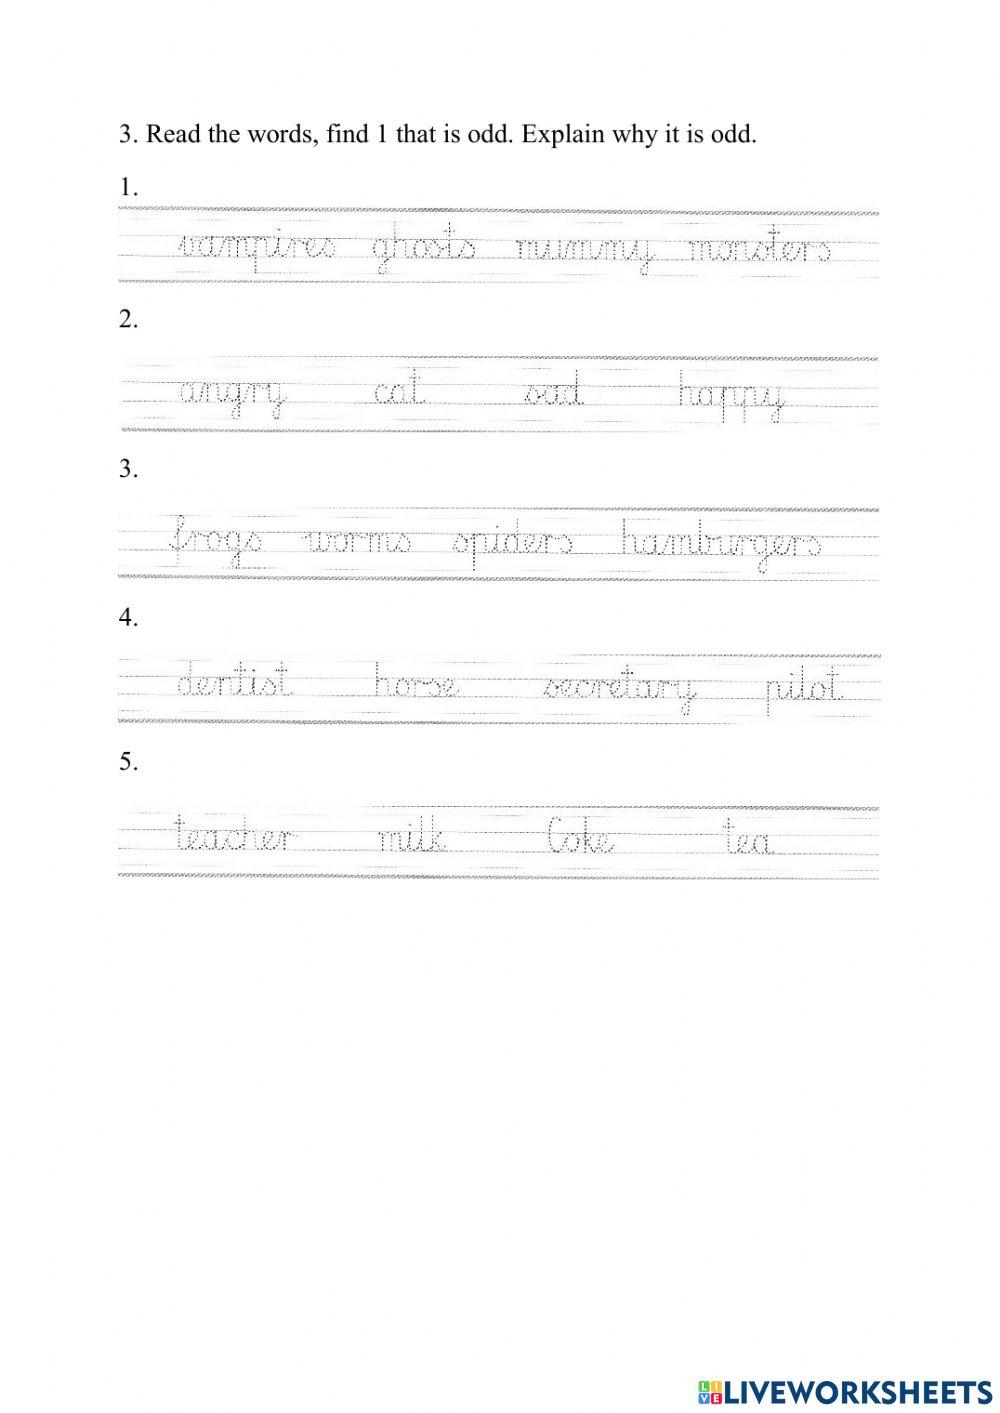 3. Read the words, find 1 that is odd. Explain why it is odd.
1.
vampires ghosts mummy monsters
2.
angry cat sad happy
3.
frogs worms spiders hamburgers
4.
dentist horse secretary pilot
5.
teacher milk Coke tea
LIVEWORKSHEETS